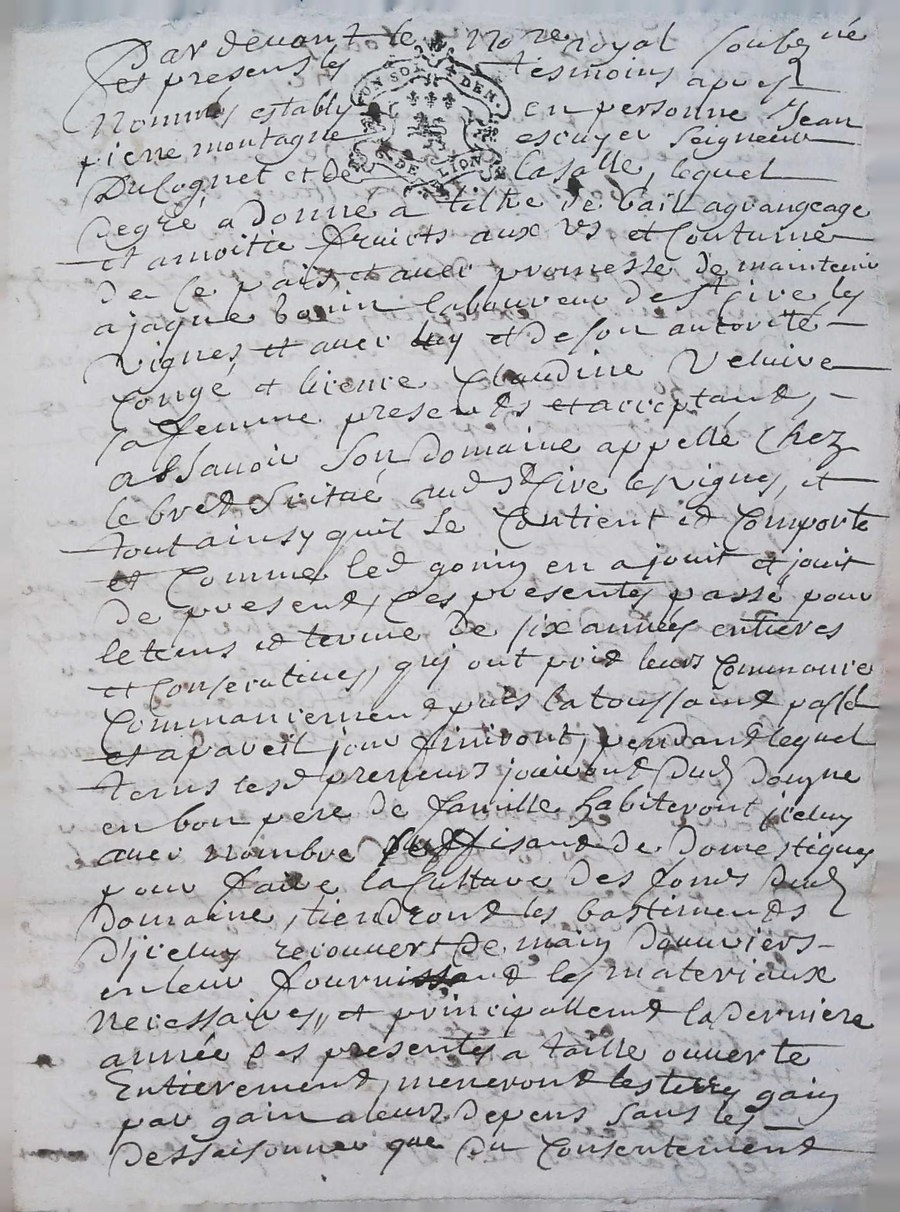 Par devant le No.re royal soubz né
et presens les tesmoins apres
nommés estably en personne Jean
pierre montagne escuyer Seigneur
Du Cognet et de Lasalle, lequel
De gré, a donné a tiltre de bail a grangeage
et a moitié fruicts aux Us et Coutume
de Ce pais, et avec promesse de maintenir
a jaque laboureur de St Cire les
Vignes, et avec luy et de son autorité
Congé, et licence Claudine Veluire
sa femme presents et acceptant,
assavoir Son domaine appellé Chez
lebret Scitué aud St Cire les vignes, et
tout ainsy quil Se Contient et Comporte
et Comme led gonin en a jouit et jouit
de present, Ces presentes passé pour
le tems et terme de six années entieres
et Consecutives, quj ont prid leurs Commance
Commancement depuis la toussaint passé
et a pareil jour finiront, pendant lequel
tems lesd preneurs jouiront dud
en bon pere de famille habiteront jceluy
avec nombre suffisant de Domestiques
pour faire la Culture des fonds dud
Domaine, tiendront les bastiments
d'jceluy recouvert de main Douvriers
en leur fournissant les materiaux
necessaires, et principallemt la derniere
année des presentes a taille ouverte
Entierement, meneront les terres gain
par gain a leurs depens Sans les
dessaisonner que du Consentement
UN SOL 4 DEN.
G. DE LION